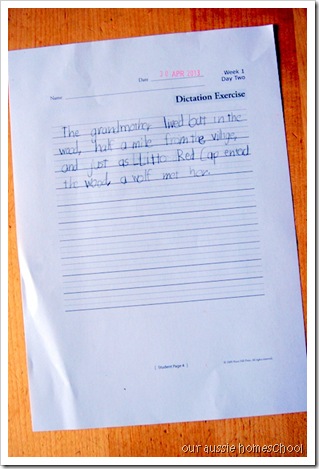 Week 1
Date 20 APR 2013 Day Two
Name
Dictation Exercise
The grandmother lived out in the
wood, half a mile from the village,
and just as Little Red Cap entered
the wood, a wolf met her.
[ Student Page 4 ]
our aussie homeschool